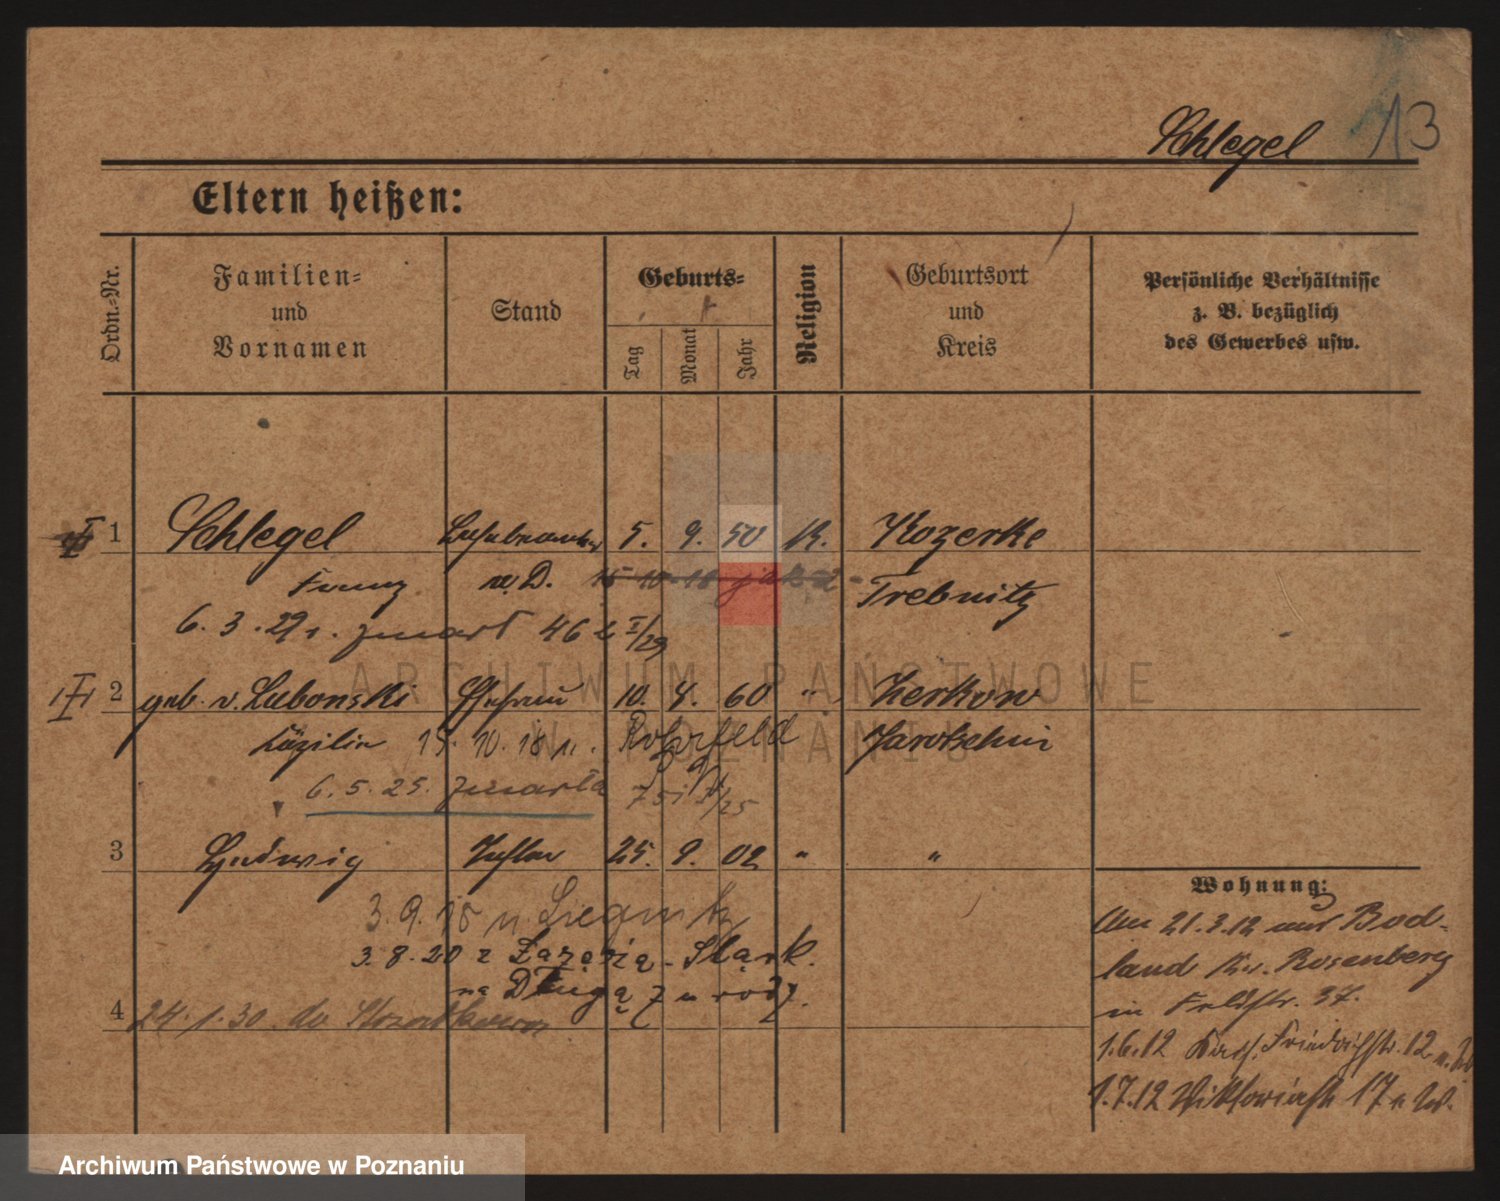 Schlegel 13
Eltern heißen:
Ordn.-Nr.
Familien-
und
Vornamen
Stand
Geburts-
Tag
Monat
Jahr
Religion
Geburtsort
und
Kreis
Persönliche Verhältnisse
z. B. bezüglich
des Gewerbes usw.
I 1 Schlegel 5. 9. 50 K. Kozerke
Franz 15 10 18 Trebnitz
6. 3. 29 r. zmarł 46 I/29
II 2 geb. v. Lubonski Ehefrau 10. 4. 60 " Zerkow
Cäzilie 15. 10. 18 n. Rohrfeld Jarotschin
6. 5. 25. zmarła 75 /25
3 Ludwig 25. 9. 02 " "
3. 9. 18 n. Liegnitz
3. 8. 20 z
na Długą 7 u rodz.
4 24. 1. 30. do
Wohnung:
Am 21.3.12 aus Bod-
land Kr. Rosenberg
in Feldstr. 37.
1.6.12 Friedrichstr. 12
1.7.12 Viktoriastr 17
ARCHIWUM PAŃSTWOWE
W POZNANIU
Archiwum Państwowe w Poznaniu